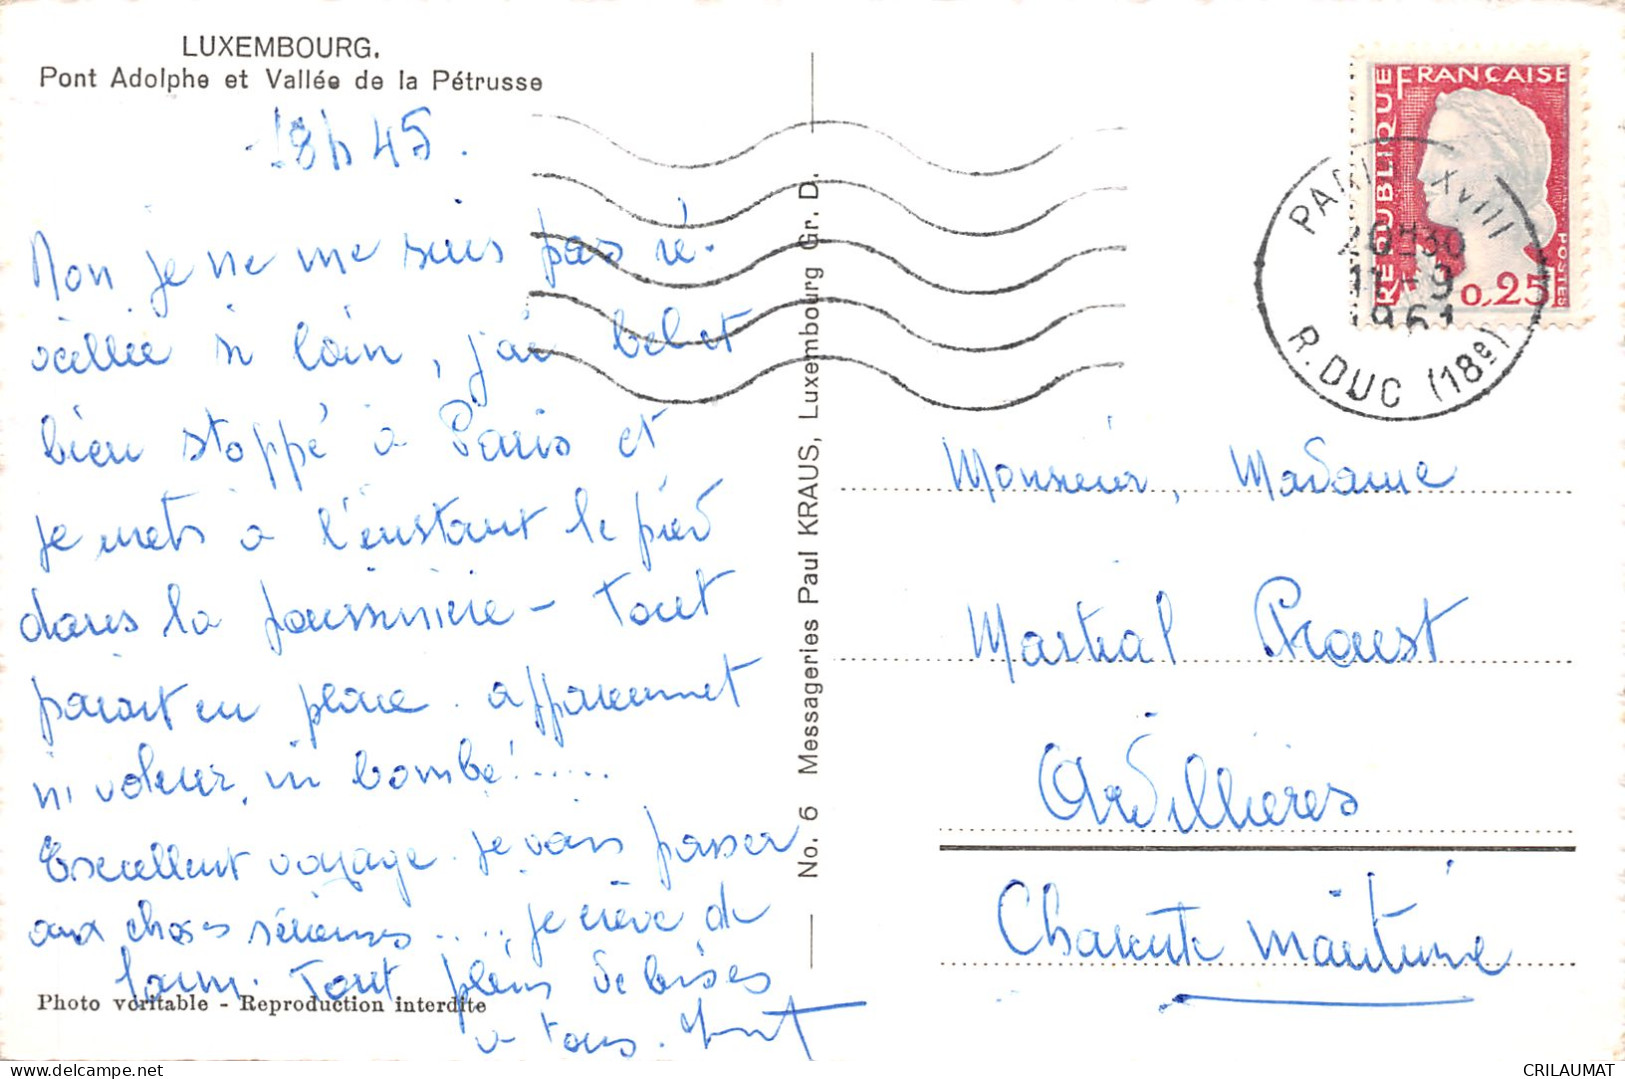 LUXEMBOURG.
Pont Adolphe et Vallée de la Pétrusse
18h45.
Non je ne me suis pas ré-
veillée si loin, j'ai bel et
bien stoppé à Paris et
je mets à l'instant le pied
dans la poussinière - Tout
paraît en place. apparemment
ni voleur, ni bombe!......
Excellent voyage. je vais passer
aux choses sérieuses....., je crève de
faim. Tout plein de bises
à tous.
Photo véritable - Reproduction interdite
No. 6 Messageries Paul KRAUS, Luxembourg Gr. D.
RÉPUBLIQUE FRANÇAISE
POSTES
0,25
PARIS XVIII
20H30
11 - 9
1961
R. DUC (18e)
Monsieur, Madame
Martial Proust
Ardillières
Charente maritime
CRILAUMAT